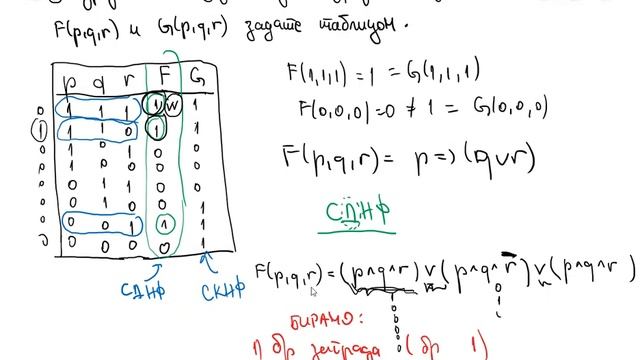 F(p,q,r) и G(p,q,r) задате таблицом.
p q r F G
0 1 1 1 1 W 1
1 1 1 0 1 1
0 1 0 1 0 0
0 1 0 0 0 0
0 0 1 1 0 0
0 0 1 0 0 0
0 0 0 1 1 1
0 0 0 0 0 1
СДНФ СКНФ
F(1,1,1)=1 = G(1,1,1)
F(0,0,0)=0 ≠ 1 = G(0,0,0)
F(p,q,r)= p => (⌉q∨r)
СДНФ
F(p,q,r)=(p∧q∧r)∨(p∧q∧r̄)∨(p∧q∧r)
БИРАМО:
1) бр (бр 1)